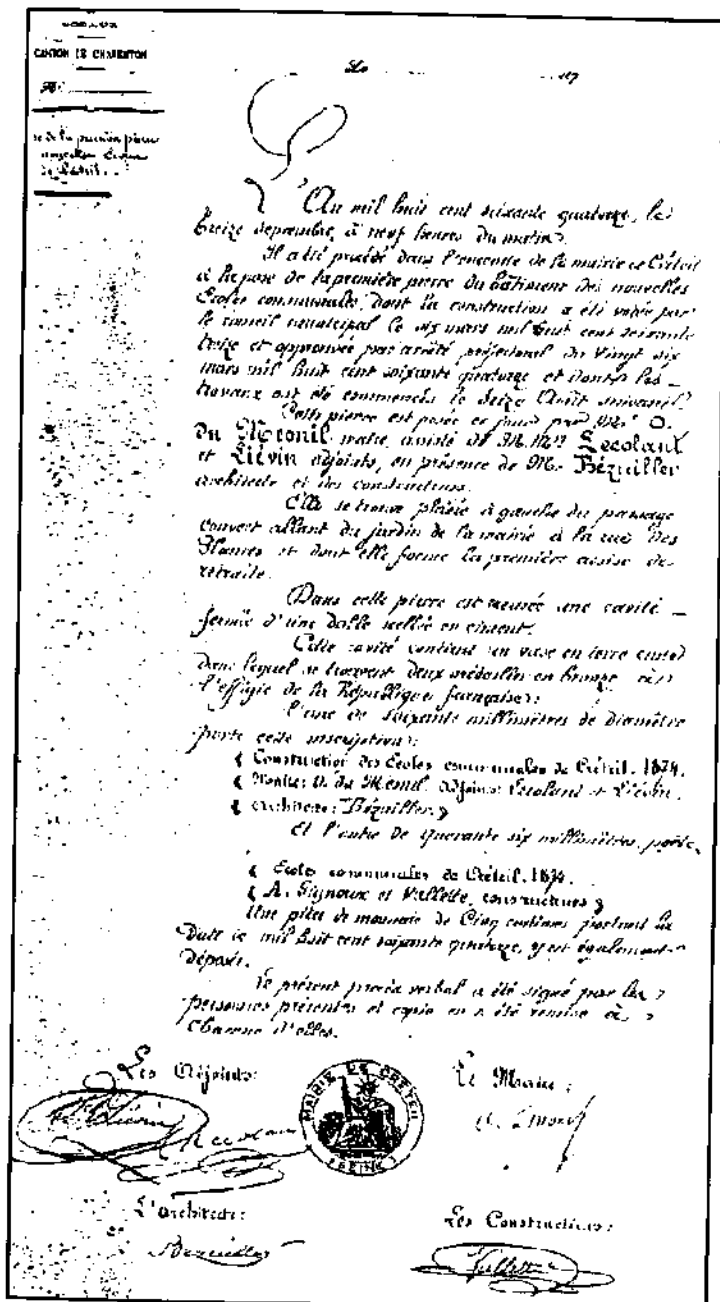 CANTON DE CHARENTON
de la première pierre
de Créteil
L'An mil huit cent soixante quatorze, le
treize septembre, à neuf heures du matin
Il a été procédé dans l'enceinte de la mairie de Créteil
à la pose de la première pierre du bâtiment des nouvelles
Écoles communales, dont la construction a été votée par
le conseil municipal le six mars mil huit cent soixante
treize et approuvée par arrêté préfectoral du vingt six
mars mil huit cent soixante quatorze et dont les
travaux ont été commencés le seize Août suivant.
Cette pierre est posée ce jour par Mr. O.
Du Mesnil, maire, assisté de M. Mrs Lecolant
et Liévin adjoints, en présence de Mr. Bézuiller
architecte et des constructeurs.
Elle se trouve placée à gauche du passage
couvert allant du jardin de la mairie à la rue des
et dont elle forme la première assise de
retraite.
Dans cette pierre est creusée une cavité
fermée d'une dalle scellée en ciment.
Cette cavité contient un vase en terre
dans lequel se trouvent deux médailles en bronze à
l'effigie de la République française:
l'une de soixante millimètres de diamètre
porte cette inscription:
Construction des Écoles communales de Créteil. 1874.
Maire: O. du Mesnil. Adjoints: Lecolant et Liévin.
Architecte: Bézuiller.
Et l'autre de quarante six millimètres, porte,
Écoles communales de Créteil. 1874.
A. Gignoux et Vallette, constructeurs
Une pièce de monnaie de Cinq centimes portant la
date de mil huit cent soixante quatorze, y est également
déposée.
Le présent procès verbal a été signé par les
personnes présentes et copie en a été remise à
chacune d'elles.
Les Adjoints:
Le Maire:
MAIRIE DE CRÉTEIL
(SEINE)
Liévin
Lecolant
L'architecte:
Les Constructeurs:
Bezuiller
Vallette